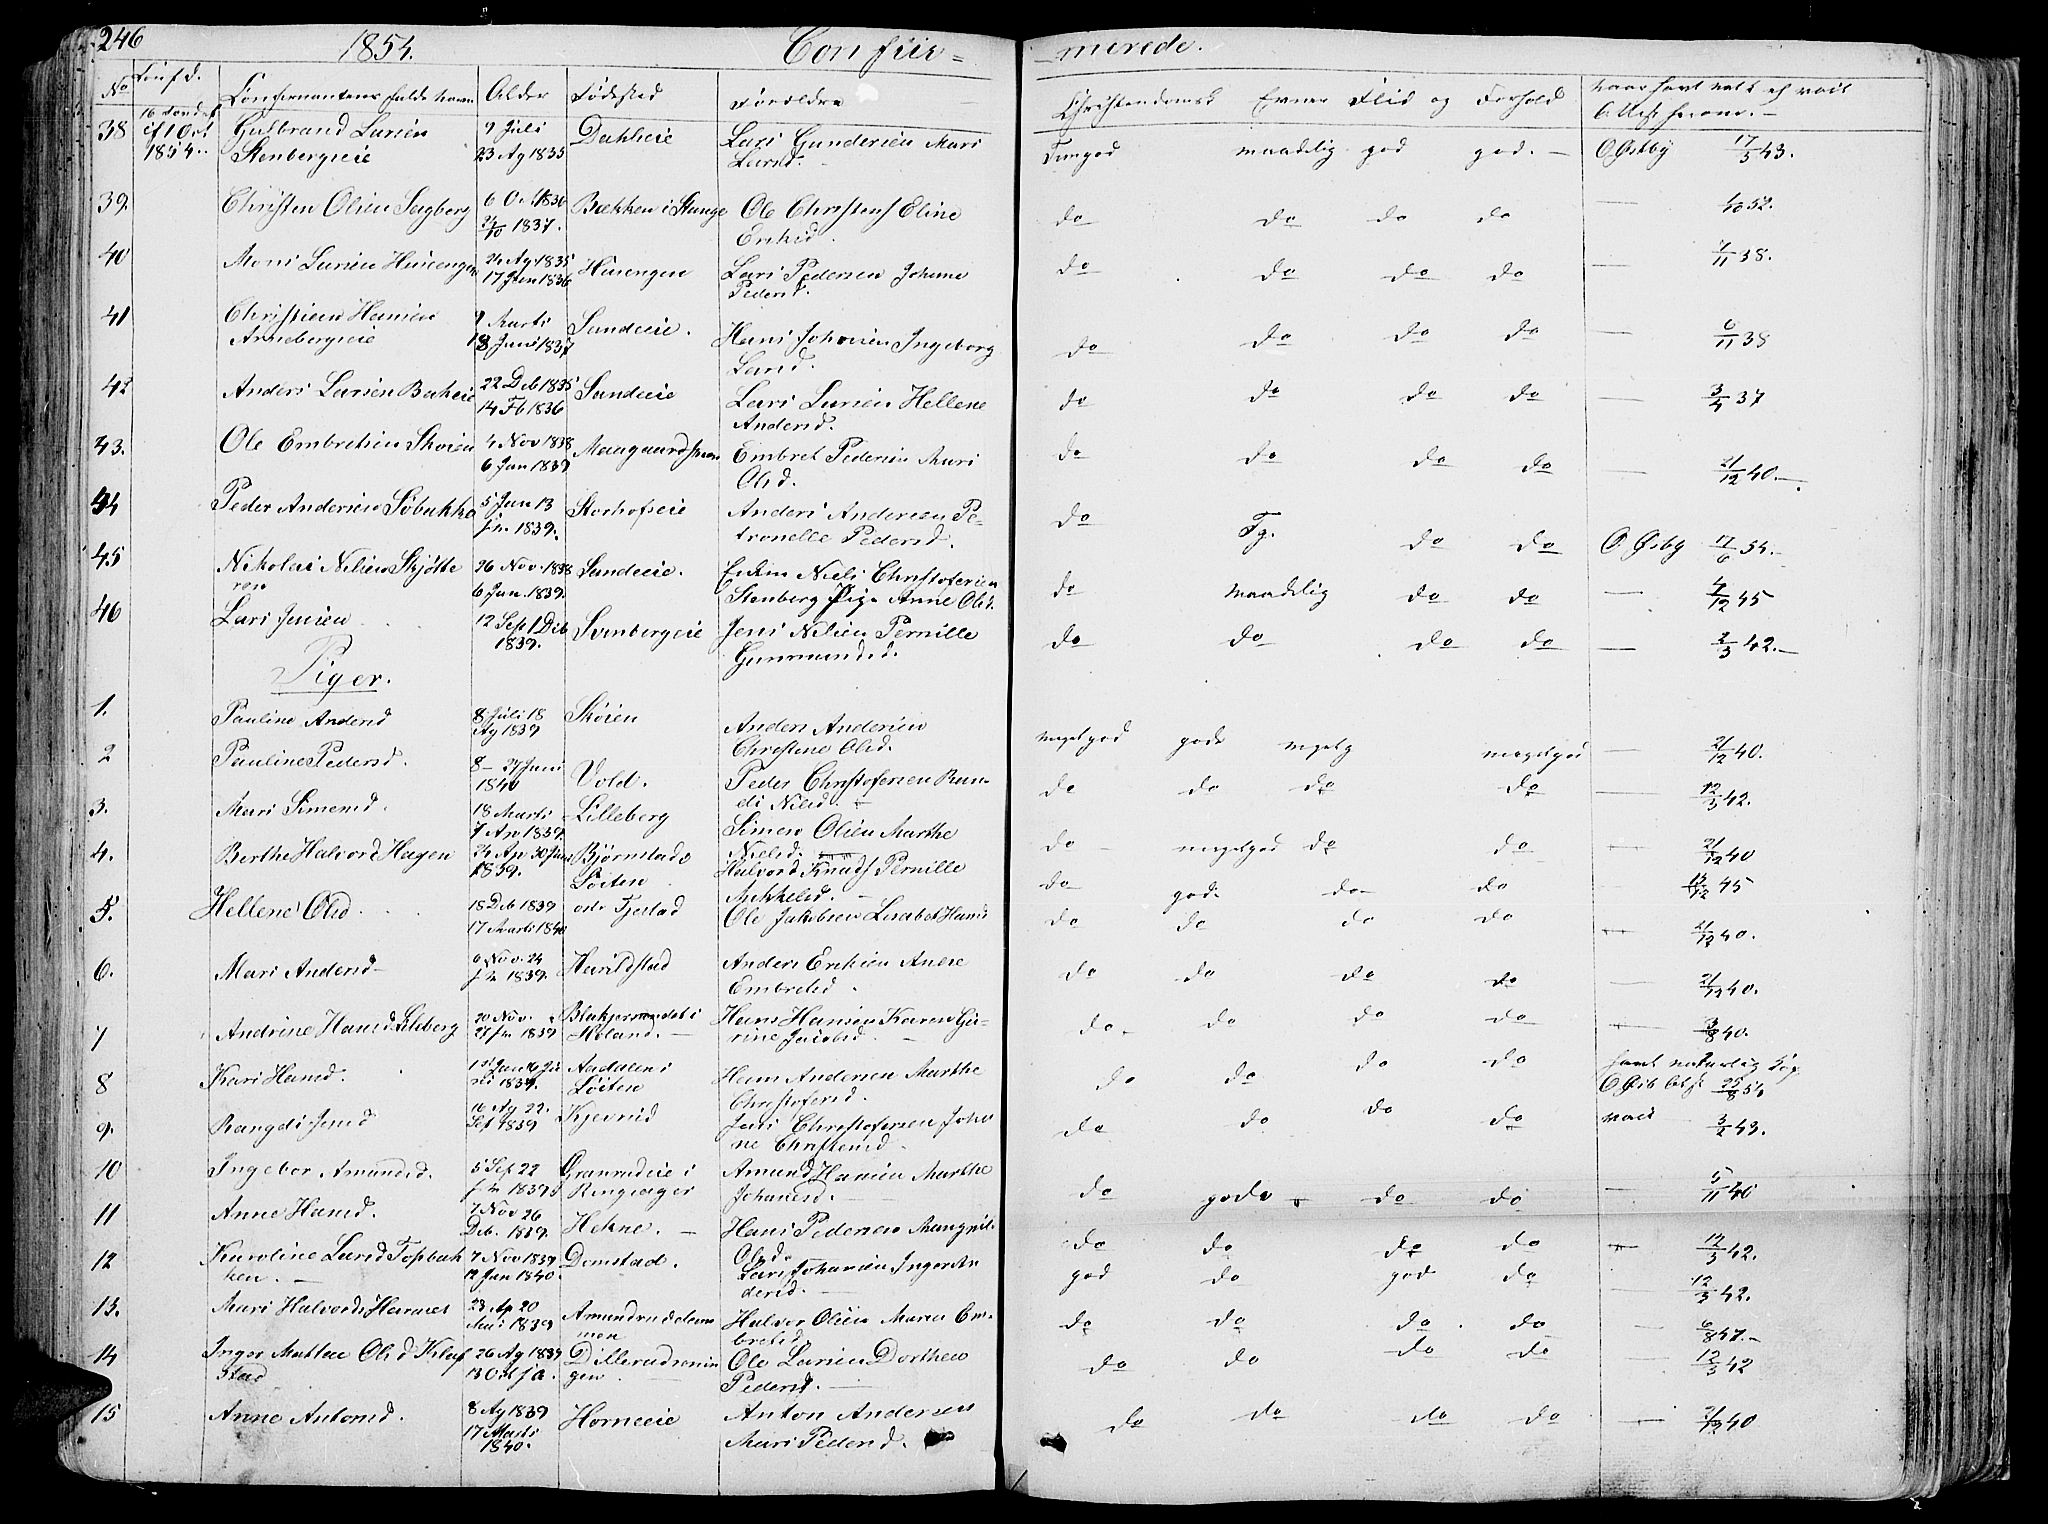 246
1854.
Confir=
=merede.
No
Confirmantens fulde navn
Alder
Fødested
Forældre
Christendomsk
Evner
Flid og
Forhold
38
1 Oct
1854.
Gulbrand Larsen
Stenbergseie
9 Juli
23 Ag 1835
Dahleie
Lars Gundersen Mari
Larsd.
maadelig
god
god.
O Østby
17/5 43.
39.
Christen Olsen Sagberg
6 O 1836
1837.
Bækken i Stange
Ole Christens Eline
do
do
do
do
52.
40
Mons Larsen Husengen
26 Ag 1835
17 Jan 1836
Husengen
Lars Pedersen Johane
Pedersd.
do
do
do
do
7/11 38.
41
Christian Hansen
Annebergseie
Marts
18 Juni 1837
Sandeeie.
Hans Johansen Ingeborg
Larsd.
do
do
do
do
6/11 38
42
Anders Larsen Bakeie
22 Deb 1835
14 Fb 1836
Sandeeie
Lars Larsen Hellene
Andersd.
do
do
do
do
3/4 37
43.
Ole Embretsen Skøien
4 Nov 1838
6 Jan 1839
Embret Pedersen Mari
Olsd.
do
do
do
do
21/12 40.
44
Peder Andersen Søbakke
5 Jan 13
1839.
Storhofseie
Anders Andersen Pe-
tronelle Pedersd.
do
Tg.
do
do
O Øsby 17/6 54.
45
Nikolai Nilsen Skjötte
ren
26 Nov. 1838
6 Jan. 1839.
Sandeeie.
Enkm Niels Christofersen
Stenberg Pige Anne Olsd.
do
maadelig
do
do
4/12 45
46
Lars Jensen
12 Sept 1 Deb
1839.
Svenbergeie
Jens Nilsen Pernille
Gunmundsd.
do
do
do
do
2/3 42.
Piger.
1.
Pauline Andersd
8 Juli 18
Ag 1839
Skøien
Anders Andersen
Christine Olsd.
megetgod
gode
megetgod
21/12 40.
2
Pauline Pedersd.
8 - 27 Juni
1840
Vold.
Peder Christofersen Ran-
di Nilsd.
do
do
do
do
12/3 42.
3.
Mari Simensd.
18 Marts
7 Ap 1839
Lilleberg
Simen Olsen Marthe
Nielsd.
do
megetgod
do
do
21/12 40
4.
Berthe Halvord Hagen
24 Ap 30 Juni
1839.
Bjørnstad
Löiten
Halvord Knuds Pernille
Mikkelsd.
do
gode
do
do
45
5.
Hellene Olsd.
18 Deb 1839
17 Marts 1840
ostr Fjestad
Ole Jakobsen Lisabet Hansd
do
do
do
do
21/12 40.
6.
Mari Andersd
6 Nov. 24
1839.
Harildstad
Anders Eriksen Anne
Embretsd.
do
do
do
do
21/12 40.
7
Andrine Hansd. Lileberg
20 Nov.
27 1839
i
Høland.
Hans Hansen Karen Gu-
rine Jacobsd.
do
do
do
do
3/8 40.
8
Kari Hansd.
1839.
Aadalen i
Löiten
Hans Andersen Marthe
Christofersd.
do
do
do
do
havt naturlig Kop.
25/8 54
9.
Rangdi Jensd
16 Ag 22.
Sep 1839
Kjevrud
Jens Christofersen Joha
ne Christensd.
do
do
do
do
vacs
3/2 43.
10
Ingebor Amundsd.
5 Sep 22
1839
Granrudeie i
Ringsager
Amund Hansen Marthe
Johansd.
do
gode
do
do
5/11 40
11
Anne Hansd.
7 Nov 26
Deb. 1839.
Hekne.
Hans Pedersen Mangnil.
Olsd.
do
do
do
do
12/3 42.
12
Karoline Larsd Topbak
ken.
7 Nov 1839
12 Jan 1840.
Domstad.
Lars Johansen Inger An
dersd.
god
do
god
do
12/3 42.
13.
Mari Halvords Hammer
23 Ap 20
Mai 1839
Halvor Olsen Maren Em-
bretsd.
do
do
do
do
6/8 47.
14
Inger Mathea Olsd Kilaf
stad
26 Ag 1839
13 Oct
Dillerudsenin
gen
Ole Larsen Dorthea
Pedersd.
do
do
do
do
12/3 42
15
Anne Antonsd.
8 Ag 1839
17 Marts
1840.
Horneeie
Anton Andersen
Mari Pedersd.
do
do
do
do
21/12 40